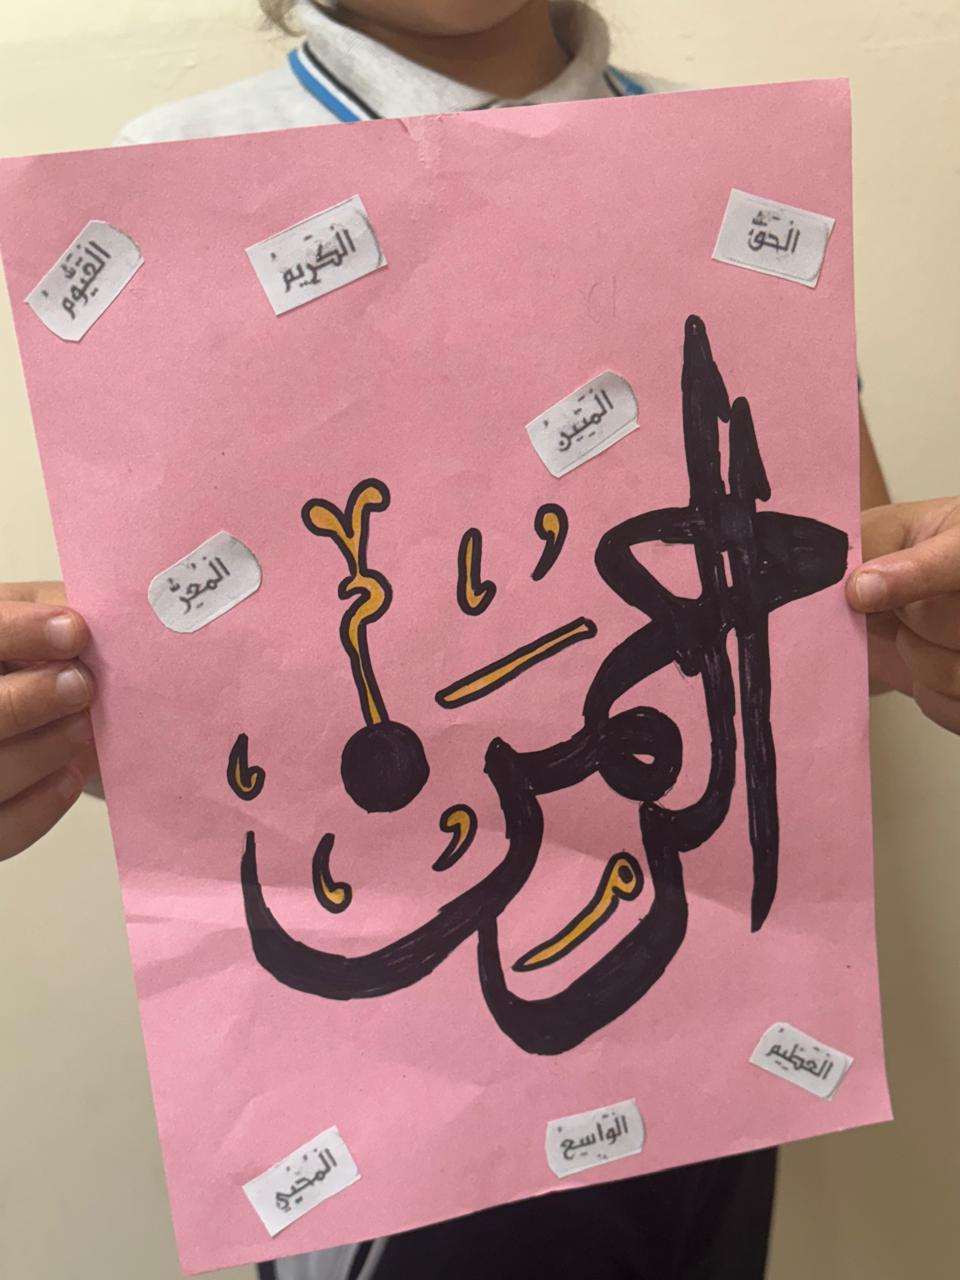 الْحَقُّ
الْكَرِيمُ
الْقَيُّومُ
الْمَتِينُ
الْمُعِزُّ
الرحمن
الْعَظِيمُ
الْوَاسِعُ
الْمُحْيِي